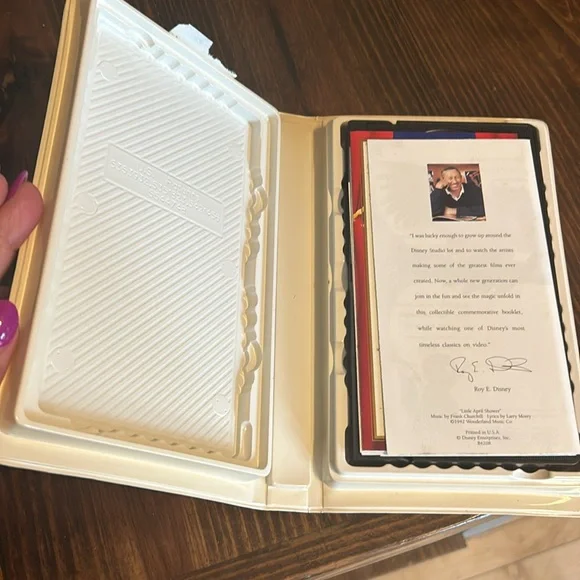 "I was lucky enough to grow up around the
Disney Studio lot and to watch the artists
making some of the greatest films ever
created. Now, a whole new generation can
join in the fun and see the magic unfold in
this, collectible commemorative booklet,
while watching one of Disney's most
timeless classics on video."
Roy E. Disney
Roy E. Disney
"Little April Shower"
Music by Frank Churchill Lyrics by Larry Morey
©1942 Wonderland Music Co
Printed in U.S.A.
© Disney Enterprises, Inc.